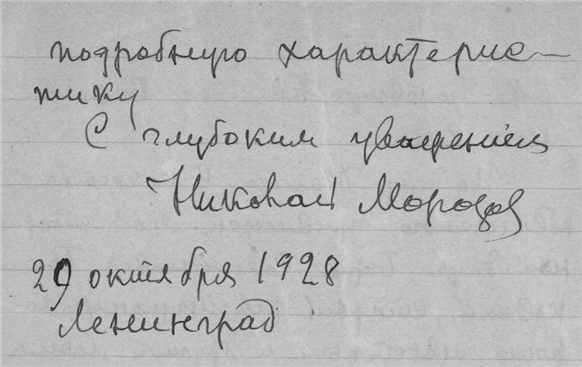 подробную характерис-
тику
С глубоким уважением
Николай Морозов
29 октября 1928
Ленинград